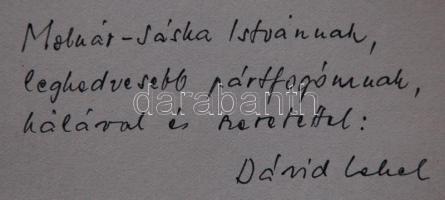 Molnár-Sáska Istvánnak,
legkedvesebb pártfogómnak,
darabanth
hálával és szeretettel:
Dávid Lehel